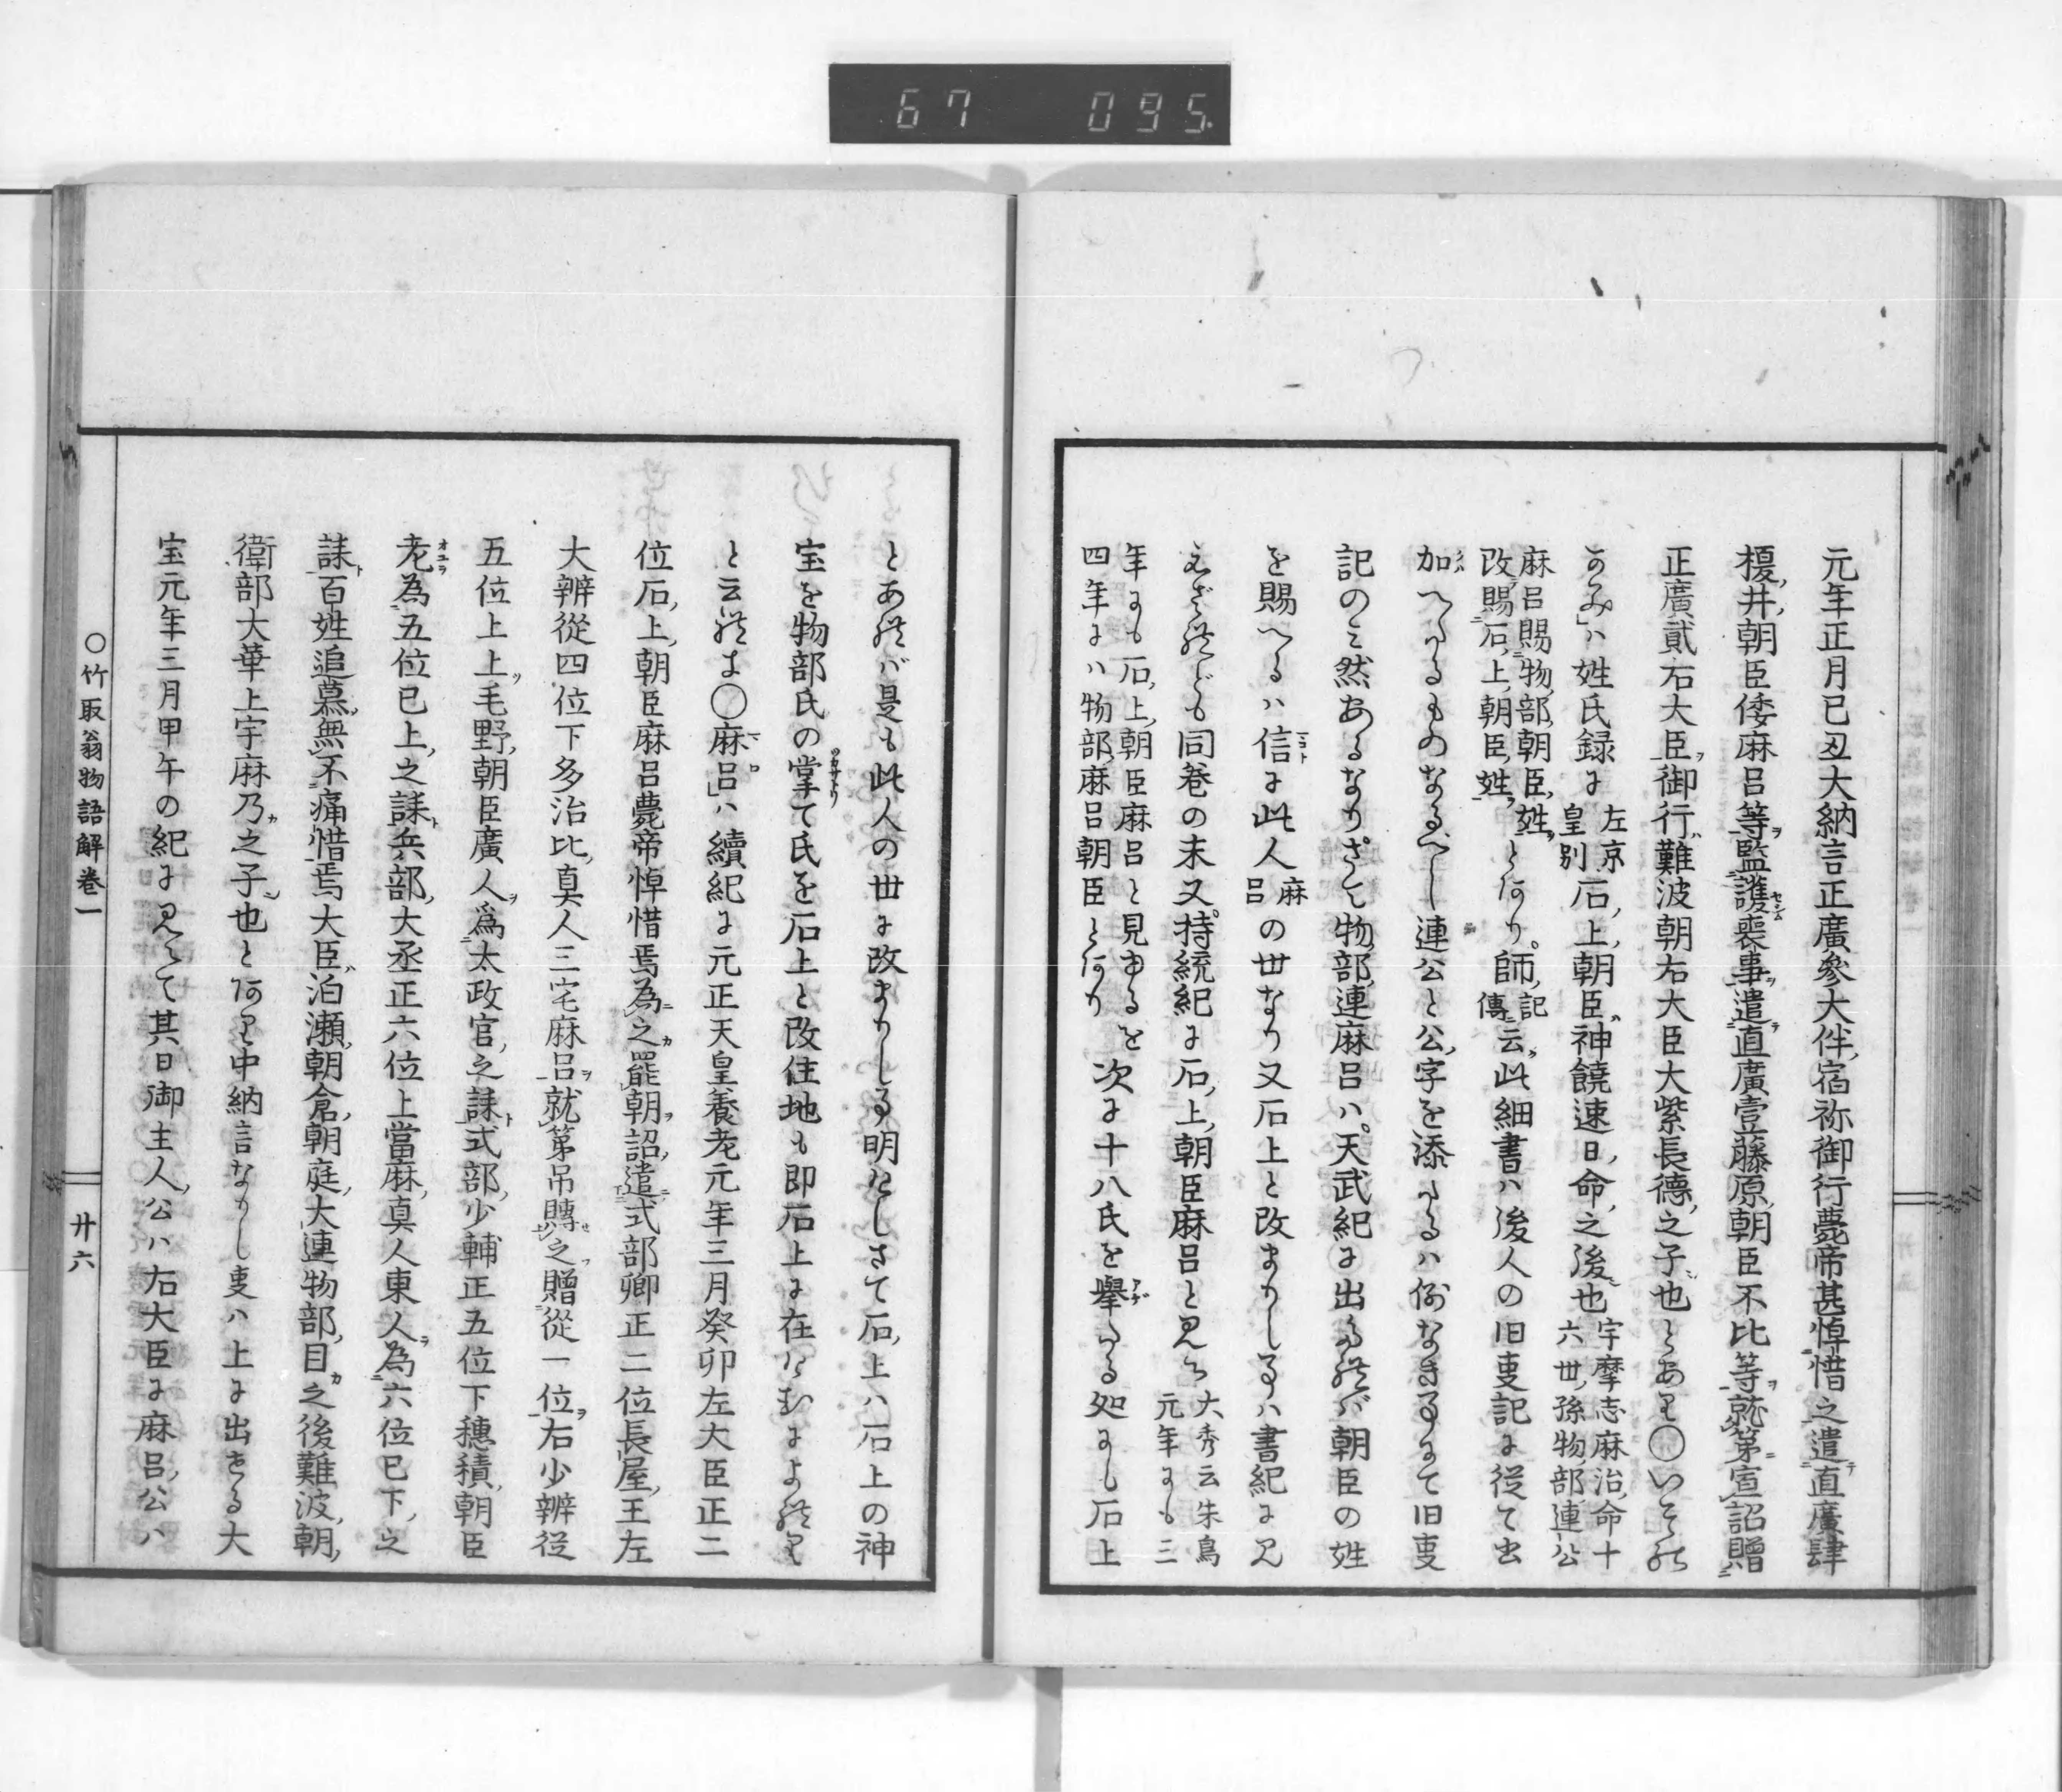 67 095
元年正月己丑大納言正廣參大伴宿祢御行薨帝甚悼惜之遣直廣肆
榎井朝臣倭麻呂等監護喪事遣直廣壹藤原朝臣不比等就第宣詔贈
正廣貳右大臣御行難波朝右大臣大紫長德之子也とあり○いそのかみ
ハ姓氏録に左京皇別石上朝臣神饒速日命之後也宇摩志麻治命十六世孫物部連公
麻呂賜物部朝臣姓改賜石上朝臣姓とあり師記傳云此細書ハ後人の旧事記に従て出
加へたるものなるべし連公と公字を添たるハ例なき事にて旧事
記のミ然あるなりさて物部連麻呂ハ天武紀に出たれバ朝臣の姓
を賜へるハ信に此人麻呂の世なり又石上と改まりし事ハ書紀に見
えざれども同巻の末又持統紀に石上朝臣麻呂と見ゆ大秀云朱鳥元年にも三
年にも石上朝臣麻呂と見
四年にハ物部麻呂朝臣とあり次に十八氏を擧たる処にも石上
とあれバ是も此人の世に改まりし事明けしさて石上ハ石上の神
宝を物部氏の掌て氏を石上と改住地も即石上に在けむによれり
と云れき○麻呂ハ續紀に元正天皇養老元年三月癸卯左大臣正二
位石上朝臣麻呂薨帝悼惜焉為之罷朝詔遣式部卿正二位長屋王左
大辨從四位下多治比真人三宅麻呂就第吊賻之贈從一位右少辨從
五位上上毛野朝臣廣人爲太政官之誄式部少輔正五位下穂積朝臣
老為五位已上之誄兵部大丞正六位上當麻真人東人為六位已下之
誄百姓追慕無不痛惜焉大臣泊瀬朝倉朝庭大連物部目之後難波朝
衛部大華上宇麻乃之子也とあり中納言なりし事ハ上に出せる大
宝元年三月甲午の紀に見えて其日御主人公ハ右大臣に麻呂公ハ
○竹取翁物語解巻一
廿六